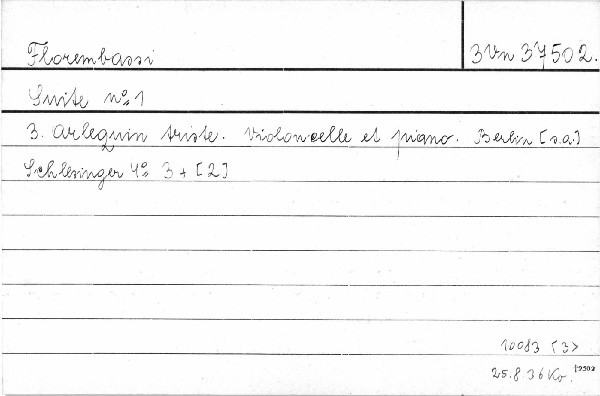 Florembassi 3 Vn 37502.
Suite no 1
3. Arlequin triste. Violoncelle et piano. Berlin [s.a.]
Schlesinger 4o 3 + [2]
10083 <3>
25.8 36 Ko. 12502